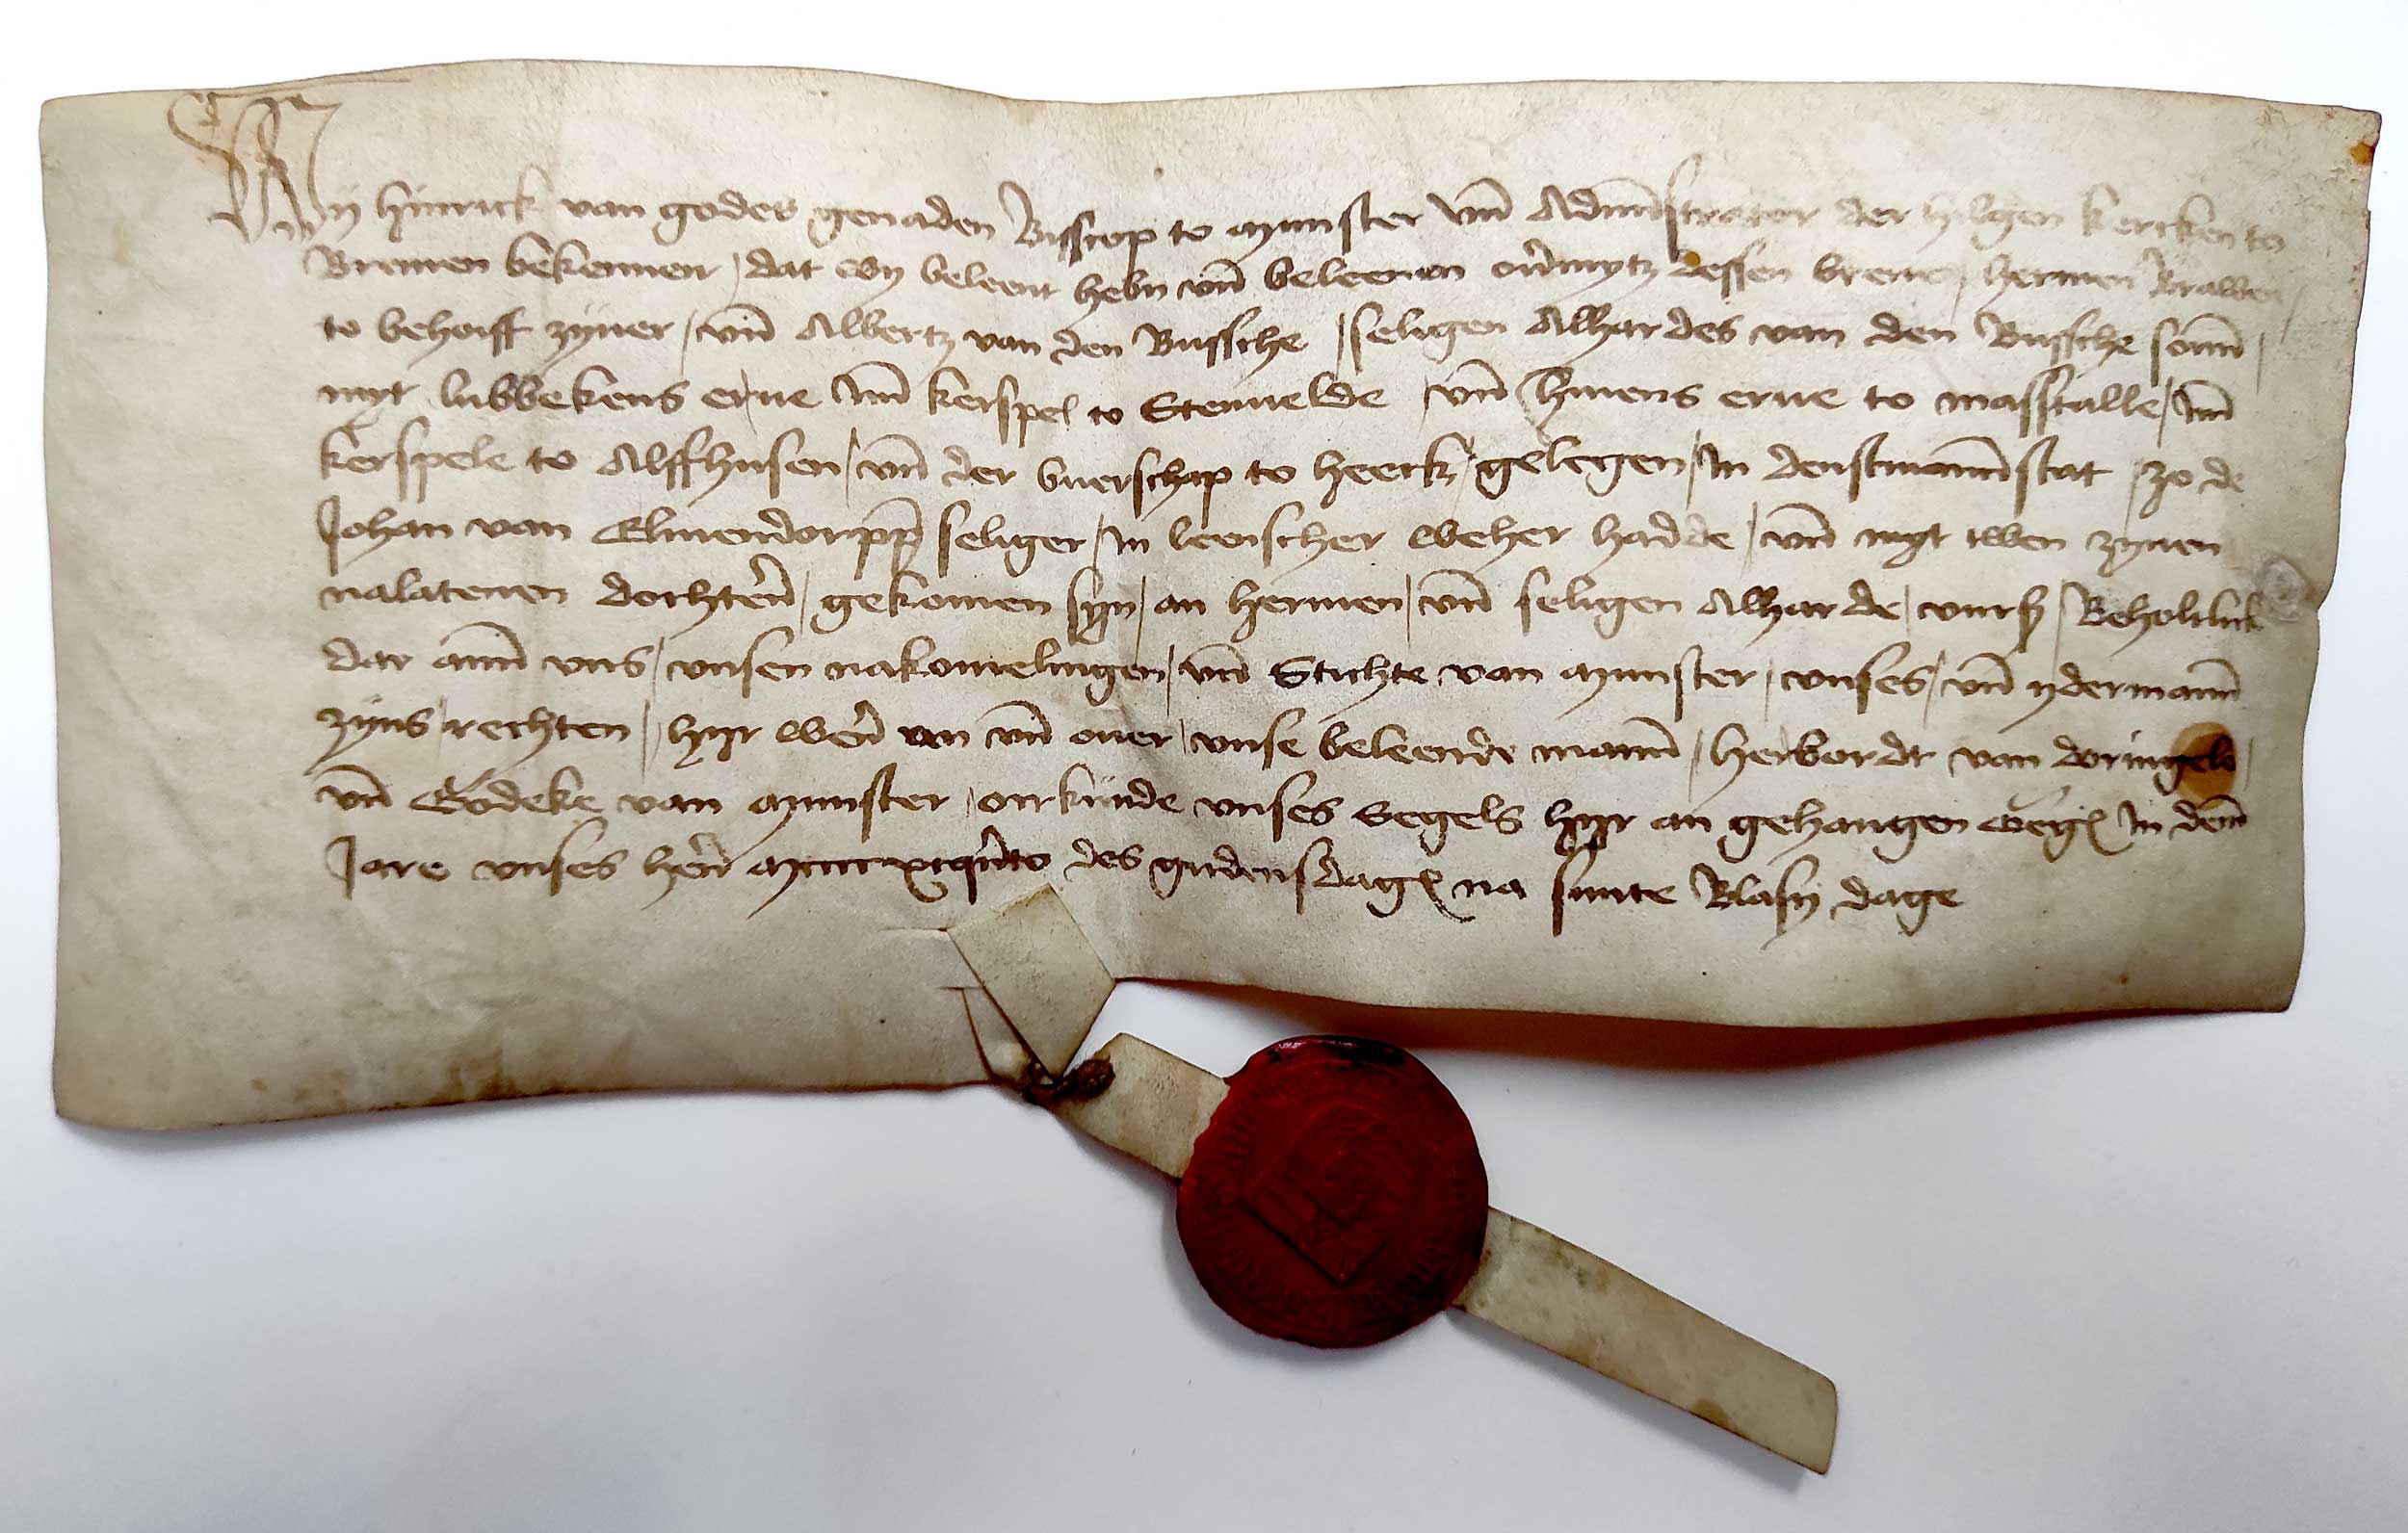 Wy Hinrick van godes genaden Bisscop to Munster vnd Administrator der hilgen kercken to
Bremen bekennen / dat wy beleent hebn vnd beleenen ouermytz dessen breue / hermen
to behoiff zyner / vnd Albertz van den Bussche / seligen Alhardes van den Bussche sonn /
myt lubbekens erue Inn kerspel to Stenuelde / vnd erue to masstalle / Inn
kerspele to Alffhusen / vnd der buerschap to heerk / gelegen / In denstmannstat / zo de
Johan van Elmendorpp seliger / in leenscher weher hadde / vnd myt twen zynen
nalatenen dochtern / gekomen syn / an hermen / vnd seligen Alharde / vurß / Beholtlick
dar ann vns / vnsen nakomelingen / vnd Stichte van Munster / vnses / vnd ydermann
zyns rechten / hyr wern an vnd ouer / vnse beleende mann / herbordt van
vnd Godeke van Munster / orkunde vnses Segels hyr an gehangen Geg In dem
Jare vnses hern des gudensdag na sunte Blasy dage